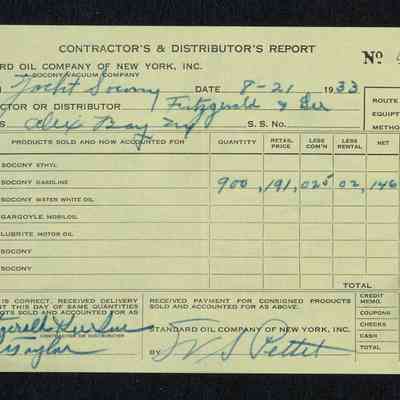 CONTRACTOR'S & DISTRIBUTOR'S REPORT
ARD OIL COMPANY OF NEW YORK, INC. Nº
A SOCONY-VACUUM COMPANY
Yacht Socony DATE 8-21 1933
CTOR OR DISTRIBUTOR Fitzgerald & Lee ROUTE
S Alex Bay NY S. S. No. EQUIPT
METHOD
PRODUCTS SOLD AND NOW ACCOUNTED FOR QUANTITY RETAIL PRICE LESS COM'N LESS RENTAL NET
SOCONY ETHYL
SOCONY GASOLINE 900 .191 .025 02 .146
SOCONY WATER WHITE OIL
GARGOYLE MOBILOIL
LUBRITE MOTOR OIL
SOCONY
SOCONY
TOTAL
IS CORRECT. RECEIVED DELIVERY RECEIVED PAYMENT FOR CONSIGNED PRODUCTS CREDIT MEMO.
T THIS DAY OF SAME QUANTITIES SOLD AND ACCOUNTED FOR AS ABOVE. COUPONS
TS SOLD AND ACCOUNTED FOR AS CHECKS
CONTRACTOR OR DISTRIBUTOR STANDARD OIL COMPANY OF NEW YORK, INC. CASH
Taylor BY Pettet TOTAL